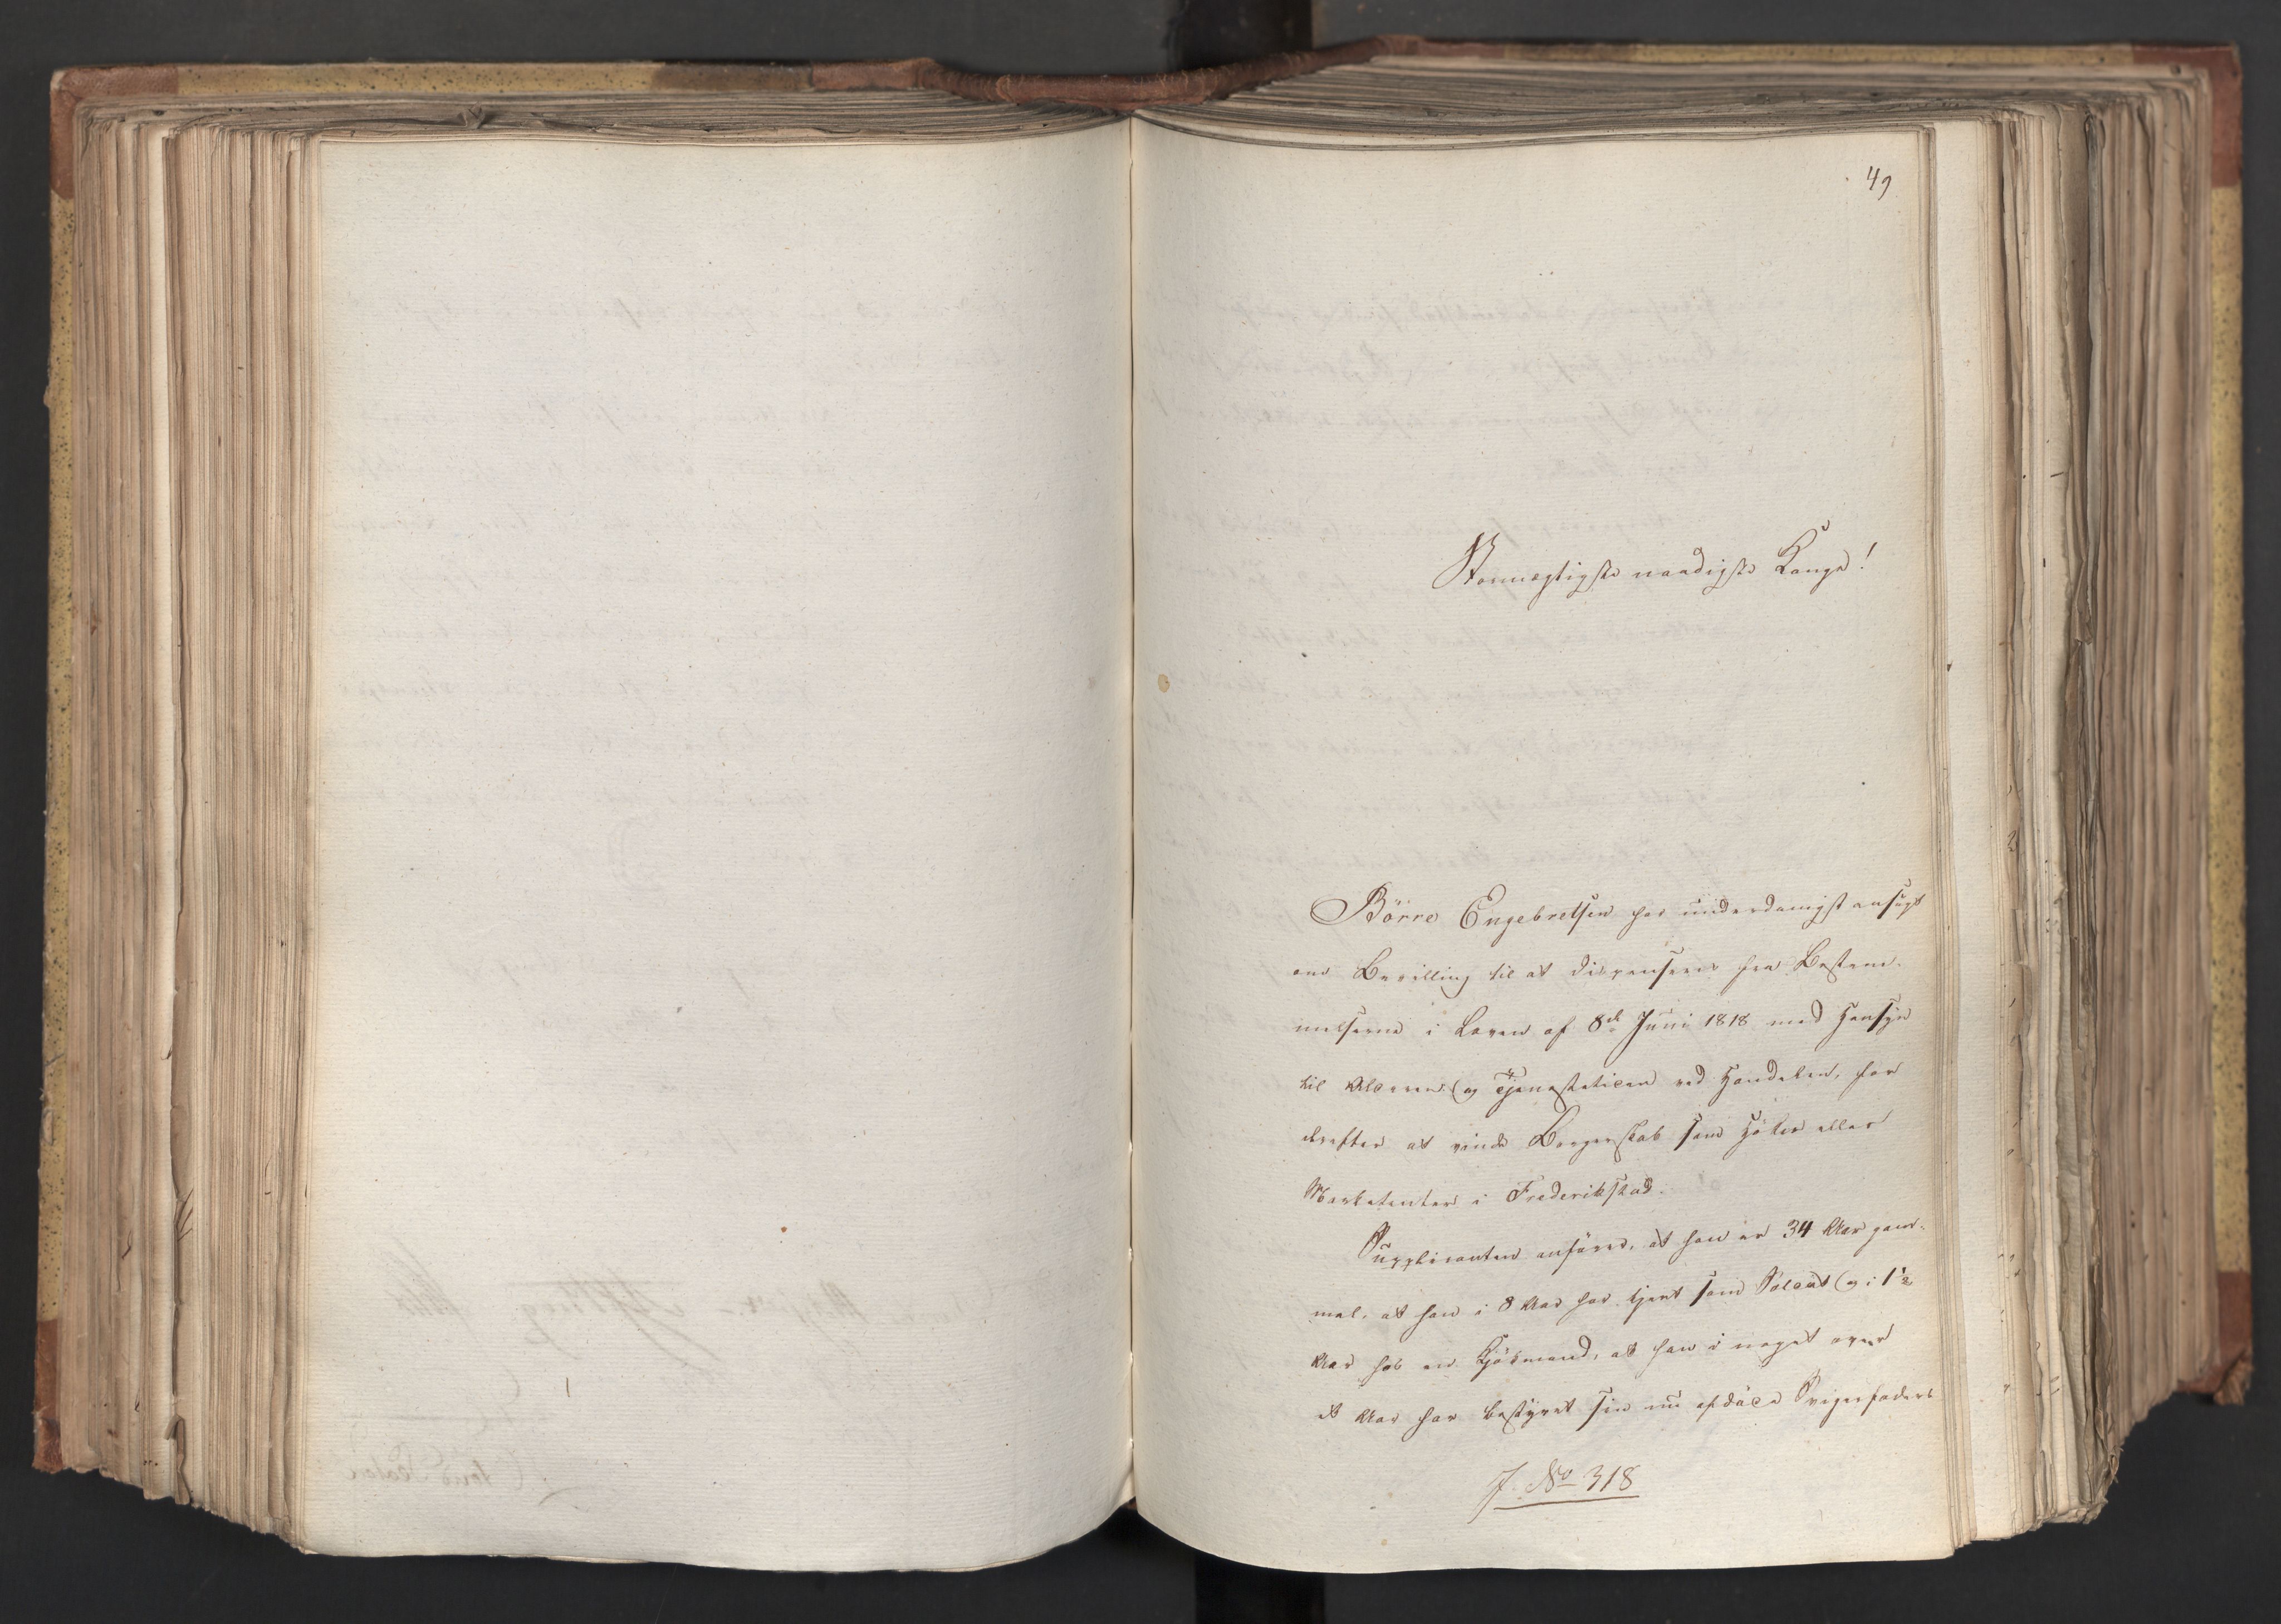 49
Stormægtigste naadigste Konge!
Börre Engebretsen har underdanigst ansøgt
om Bevilling til at dispenseres fra Bestem-
melserne i Loven af 8de Juni 1818 med Hensyn
til Alderen og Tjenestetiden ved Handelen, for
derefter at vinde Borgerskab som Höker eller
Marketenter i Frederikstad.
Supplicanten anförer, at han er 34 Aar gam-
mel, at han i 8 Aar har tjent som Soldat og i 1½
Aar hos en Kjöbmand, at han i noget over
et Aar har bestyret sin nu afdöde Svigerfaders
J. No 318